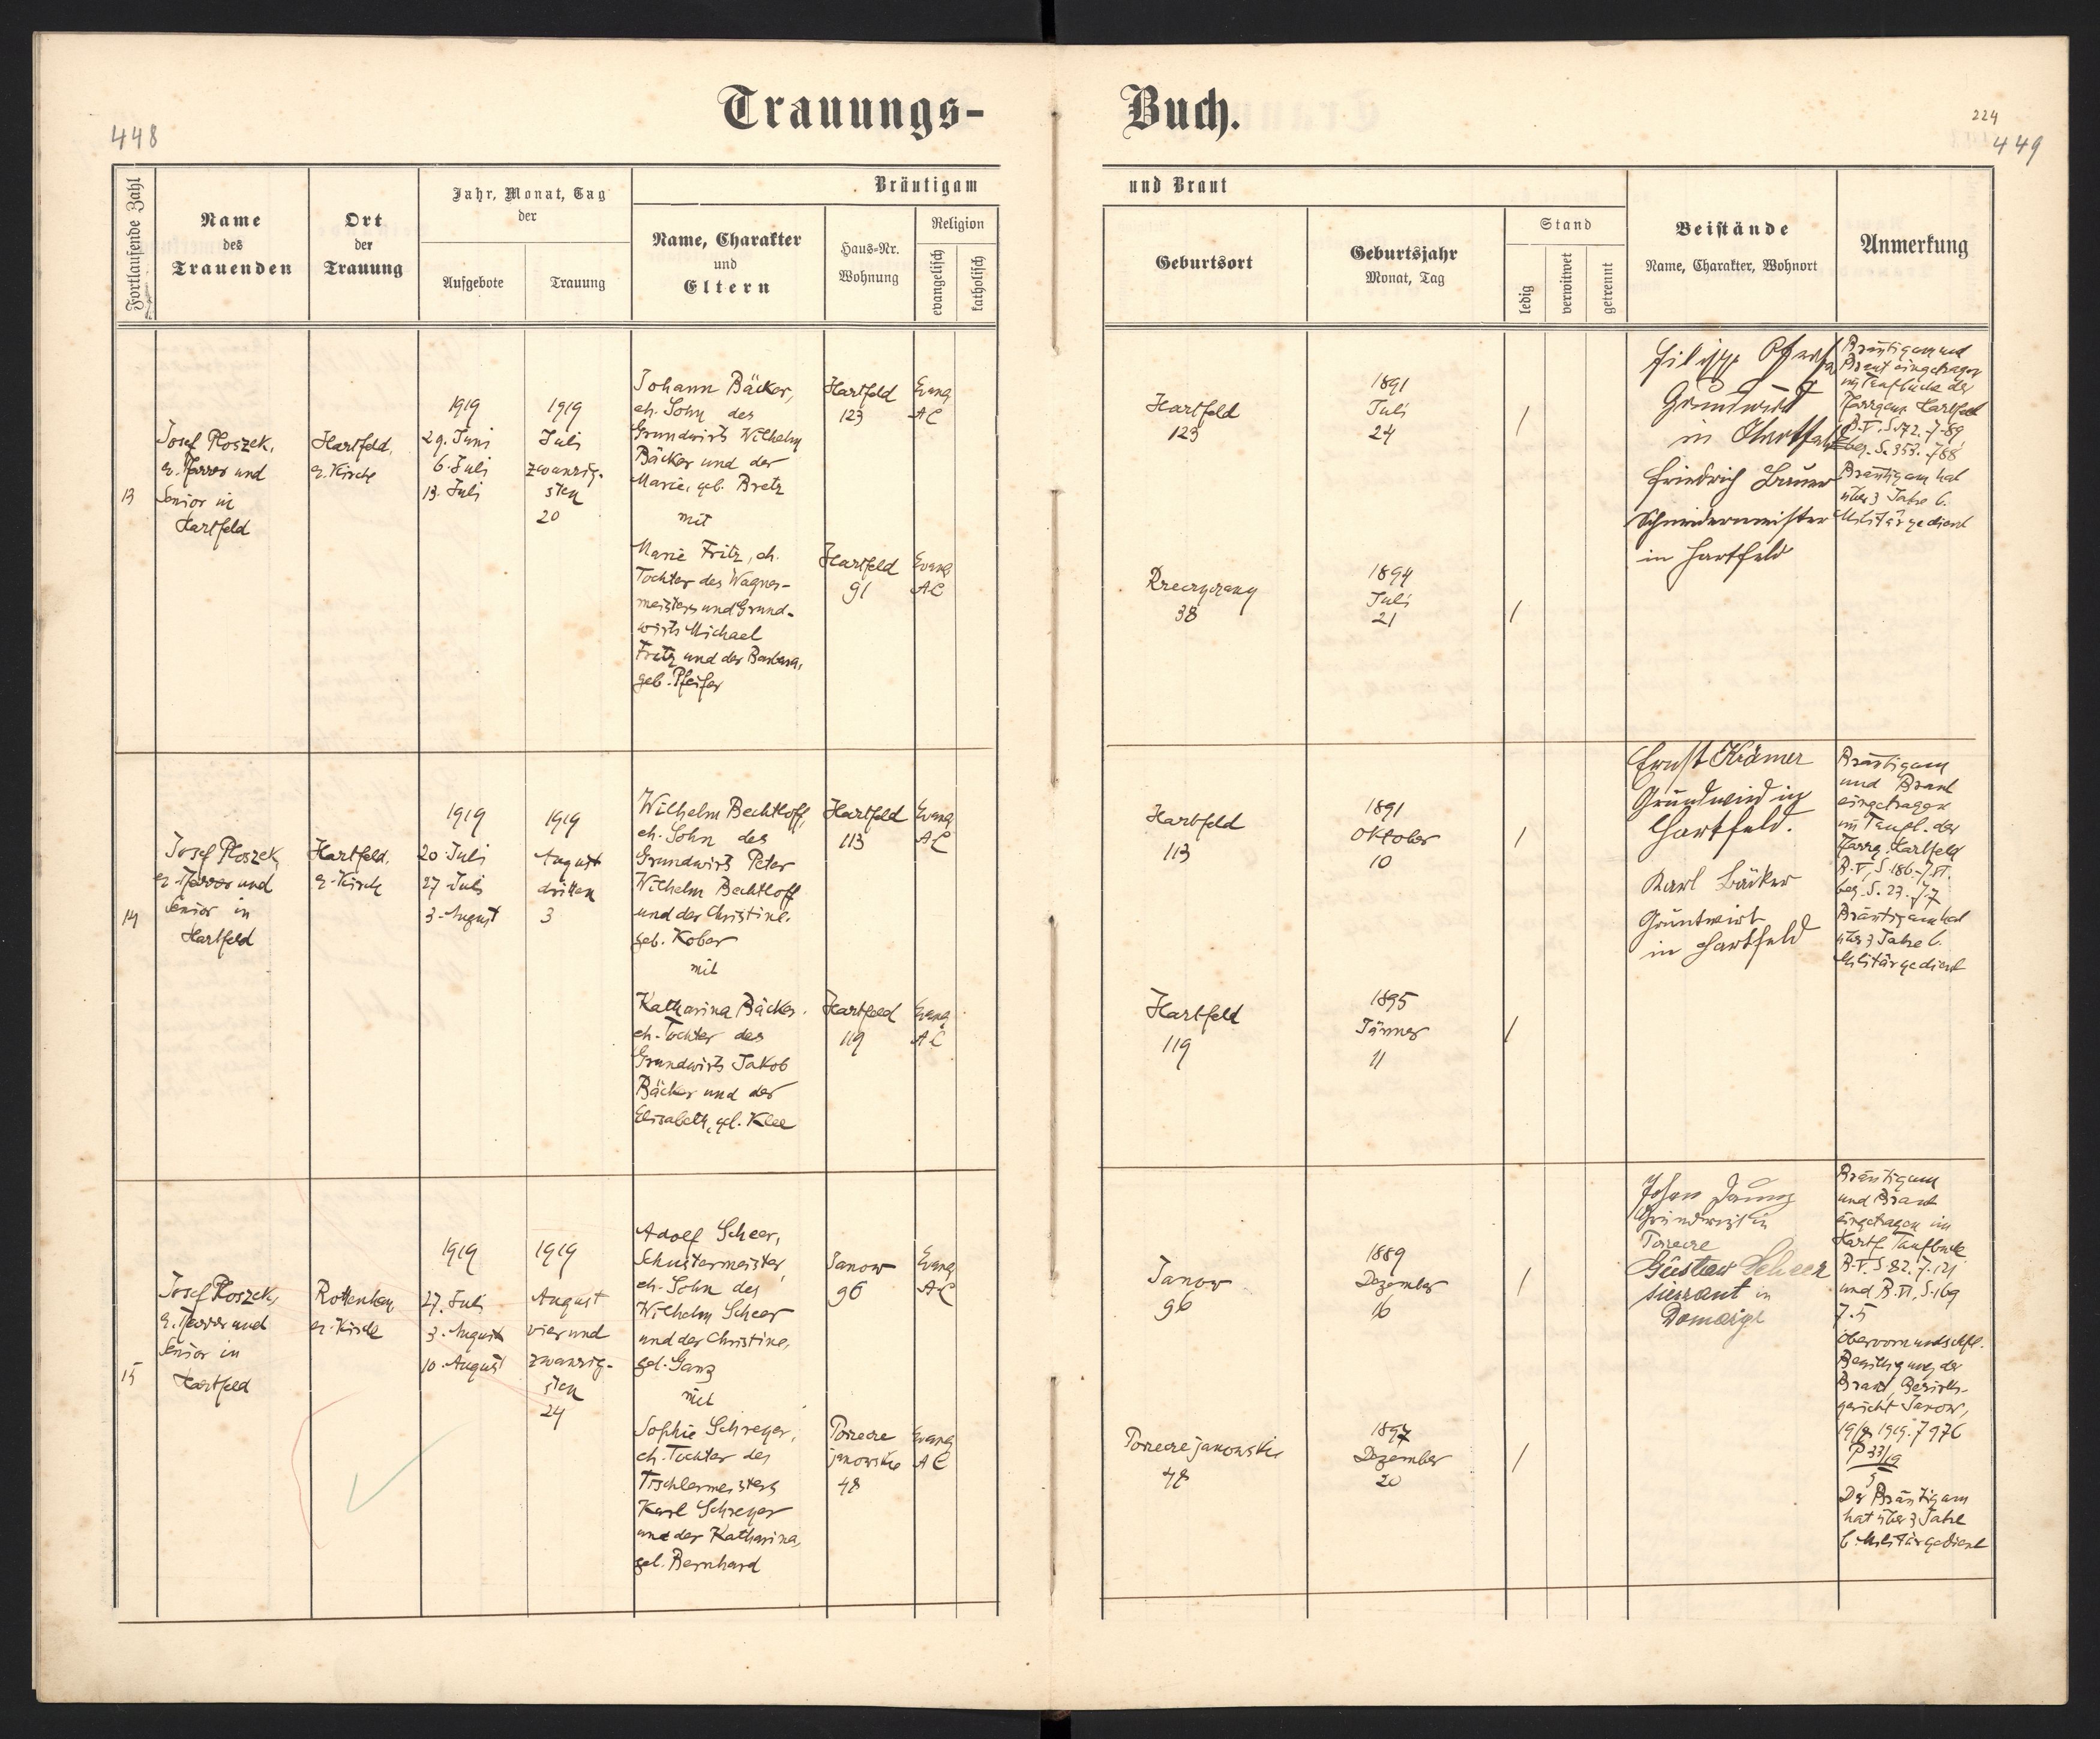 Trauungs-
Buch.
448
224
449
Fortlaufende Zahl
Name
des
Trauenden
Ort
der
Trauung
Jahr, Monat, Tag
der
Aufgebote
Trauung
Bräutigam
Name, Charakter
und
Eltern
Haus-Nr.
Wohnung
Religion
evangelisch
katholisch
und Braut
Geburtsort
Geburtsjahr
Monat, Tag
Stand
ledig
verwitwet
getrennt
Beistände
Name, Charakter, Wohnort
Anmerkung
13
Josef Ploszek,
ev. Pfarrer und
Senior in
Hartfeld
Hartfeld,
ev. Kirche
1919
29. Juni
6. Juli
13. Juli
1919
Juli
zwanzig-
sten
20
Johann Bäcker,
eh. Sohn des
Grundwirts Wilhelm
Bäcker und der
Marie, geb. Bretz
mit
Marie Fritz, eh.
Tochter des Wagner-
meisters und Grund-
wirts Michael
Fritz und der Barbara,
geb. Pfeifer
Hartfeld
123
Evang
AC
Hartfeld
91
Evang
AC
Hartfeld
123
1891
Juli
24
/
38
1894
Juli
21
/
Filipp
Grundwirt
in Hartfeld
Friedrich Bauer
Schneidermeister
in Hartfeld
Bräutigam und
Braut eingetragen
im Taufbuche der
Pfarrgem. Hartfeld
B. V, S. 172. 7. 89,
bez. S. 353. 7 88
Bräutigam hat
über 3 Jahre b.
Militär gedient
14
Josef Ploszek,
ev. Pfarrer und
Senior in
Hartfeld
Hartfeld,
ev. Kirche
1919
20. Juli
27. Juli
3. August
1919
August
dritten
3
Wilhelm Bechtloff,
eh. Sohn des
Grundwirts Peter
Wilhelm Bechtloff
und der Christine,
geb. Kober
mit
Katharina Bäcker,
eh. Tochter des
Grundwirts Jakob
Bäcker und der
Elisabeth, geb. Klee
Hartfeld
113
Evang
AC
Hartfeld
119
Evang
AC
Hartfeld
113
1891
Oktober
10
/
Hartfeld
119
1895
Jänner
11
/
Ernst Krämer
Grundwird in
Hartfeld.
Karl Bäcker
Gruntwirt
in Hartfeld
Bräutigam
und Braut
eingetragen
im Taufb. der
Pfarrg. Hartfeld
B. V, S. 186. 7.
bez. S. 23. 7.7
Bräutigam hat
über 3 Jahre b.
Militär gedient
15
Josef Ploszek,
ev. Pfarrer und
Senior in
Hartfeld
Rottenhan,
ev. Kirche
1919
27. Juli
3. August
10. August
1919
August
vierund
zwanzig-
sten
24
Adolf Scheer,
Schustermeister,
eh. Sohn des
Wilhelm Scheer
und der Christine,
geb. Ganz
mit
Sophie Schreyer,
eh. Tochter des
Tischlermeisters
Karl Schreyer
und der Katharina,
geb. Bernhard
Janow
96
Evang
AC
Porzecze
janowskie
48
Evang
AC
Janow
96
1889
Dezember
16
/
Porzecze janowskie
48
1897
Dezember
20
/
Johan
Grundwirt in
Porzecze
Gustaw Scheer
in
Bräutigam
und Braut
eingetragen im
Hartf. Taufbuche
B. V. S. 82. 7. 121
und B. VI, S. 169
7. 5
Obervormundschftl.
Bewilligung der
Braut, Bezirks-
gericht Janow,
1919. 7 976
P 33/19
5
Der Bräutigam
hat über 3 Jahre
b. Militär gedient